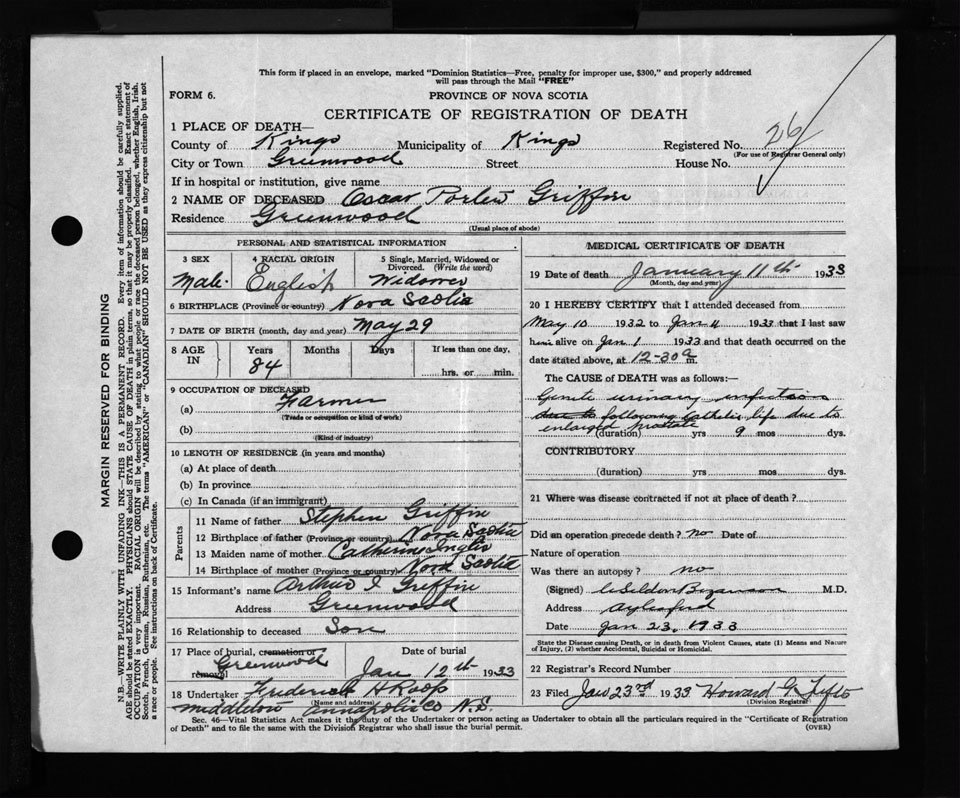 This form if placed in an envelope, marked "Dominion Statistics—Free, penalty for improper use, $300," and properly addressed
will pass through the Mail "FREE"
FORM 6.
PROVINCE OF NOVA SCOTIA
CERTIFICATE OF REGISTRATION OF DEATH
1 PLACE OF DEATH—
County of Kings Municipality of Kings Registered No. 26
(For use of Registrar General only)
City or Town Greenwood Street House No.
If in hospital or institution, give name
2 NAME OF DECEASED Oscar Porter Griffin
Residence Greenwood
(Usual place of abode)
PERSONAL AND STATISTICAL INFORMATION
3 SEX 4 RACIAL ORIGIN 5 Single, Married, Widowed or
Divorced. (Write the word)
Male English Widower
6 BIRTHPLACE (Province or country) Nova Scotia
7 DATE OF BIRTH (month, day and year) May 29
8 AGE IN Years Months Days If less than one day,
84 hrs. or min.
9 OCCUPATION OF DECEASED
(a) Farmer
(Trade or occupation or kind of work)
(b)
(Kind of industry)
10 LENGTH OF RESIDENCE (in years and months)
(a) At place of death
(b) In province
(c) In Canada (if an immigrant)
Parents
11 Name of father Stephen Griffin
12 Birthplace of father (Province or country) Nova Scotia
13 Maiden name of mother Catherine Inglis
14 Birthplace of mother (Province or country) Nova Scotia
15 Informant's name Arthur I Griffin
Address Greenwood
16 Relationship to deceased Son
17 Place of burial, cremation or removal Date of burial
Greenwood Jan 12th 1933
18 Undertaker Frederick H Roop
(Name and address)
Middleton Annapolis Co N.S.
MEDICAL CERTIFICATE OF DEATH
19 Date of death January 11th 1933
(Month, day and year)
20 I HEREBY CERTIFY that I attended deceased from
May 10 1932 to Jan 11 1933 that I last saw
him alive on Jan 1 1933 and that death occurred on the
date stated above, at 12-30 a m.
The CAUSE of DEATH was as follows:—
Genito urinary infection
following catheter life due to
enlarged prostate
(duration) yrs 9 mos dys.
CONTRIBUTORY
(duration) yrs. mos. dys.
21 Where was disease contracted if not at place of death?
Did an operation precede death? no Date of
Nature of operation
Was there an autopsy? no
(Signed) M.D.
Address Aylesford
Date Jan 23, 1933
State the Disease causing Death, or in death from Violent Causes, state (1) Means and Nature
of Injury, (2) whether Accidental, Suicidal or Homicidal.
22 Registrar's Record Number
23 Filed Jan 23rd 1933 Howard G
(Division Registrar)
Sec. 46—Vital Statistics Act makes it the duty of the Undertaker or person acting as Undertaker to obtain all the particulars required in the "Certificate of Registration
of Death" and to file the same with the Division Registrar who shall issue the burial permit.
(OVER)
MARGIN RESERVED FOR BINDING
N.B.—WRITE PLAINLY WITH UNFADING INK—THIS IS A PERMANENT RECORD. Every item of information should be carefully supplied.
AGE should be stated EXACTLY. PHYSICIANS should STATE CAUSE OF DEATH in plain terms, so that it may be properly classified. Exact statement of
OCCUPATION is very important. RACIAL ORIGIN will be described by stating to what people or race the deceased person belonged, whether English, Irish,
Scotch, French, German, Russian, Ruthenian, etc. The terms "AMERICAN" or "CANADIAN" SHOULD NOT BE USED as they express citizenship but not
a race or people. See instructions on back of Certificate.